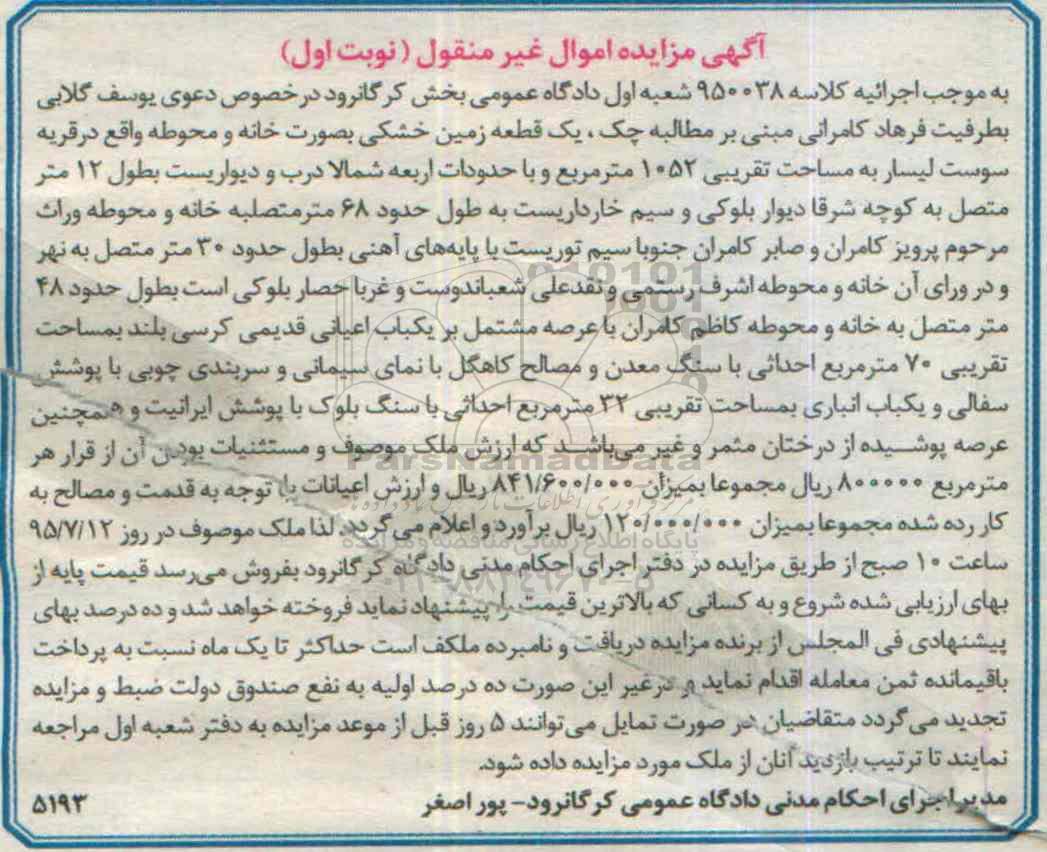 آگهی مزایده اموال غیر منقول (نوبت اول)
به موجب اجرائیه کلاسه ۹۵۰۰۳۸ شعبه اول دادگاه عمومی بخش کرگانرود در خصوص دعوی یوسف گلابی
بطرفیت فرهاد کامرانی مبنی بر مطالبه چک ، یک قطعه زمین خشکی بصورت خانه و محوطه واقع در قریه
سوست لیسار به مساحت تقریبی ۱۰۵۲ مترمربع و با حدودات اربعه شمالا درب و دیواریست بطول ۱۲ متر
متصل به کوچه شرقا دیوار بلوکی و سیم خارداریست به طول حدود ۶۸ مترمتصلبه خانه و محوطه وراث
مرحوم پرویز کامران و صابر کامران جنوبا سیم توریست با پایه‌های آهنی بطول حدود ۳۰ متر متصل به نهر
و در ورای آن خانه و محوطه اشرف رستمی و نقدعلی شعباندوست و غربا حصار بلوکی است بطول حدود ۴۸
متر متصل به خانه و محوطه کاظم کامران با عرصه مشتمل بر یکباب اعیانی قدیمی کرسی بلند بمساحت
تقریبی ۷۰ مترمربع احداثی با سنگ معدن و مصالح کاهگل با نمای سیمانی و سربندی چوبی با پوشش
سفالی و یکباب انباری بمساحت تقریبی ۳۲ مترمربع احداثی با سنگ بلوک با پوشش ایرانیت و همچنین
عرصه پوشیده از درختان مثمر و غیر می‌باشد که ارزش ملک موصوف و مستثنیات بودن آن از قرار هر
مترمربع ۸۰۰۰۰۰ ریال مجموعا بمیزان ۸۴۱/۶۰۰/۰۰۰ ریال و ارزش اعیانات با توجه به قدمت و مصالح به
کار رده شده مجموعا بمیزان ۱۲۰/۰۰۰/۰۰۰ ریال برآورد و اعلام می گردد. لذا ملک موصوف در روز ۹۵/۷/۱۲
ساعت ۱۰ صبح از طریق مزایده در دفتر اجرای احکام مدنی دادگاه کرگانرود بفروش می‌رسد قیمت پایه از
بهای ارزیابی شده شروع و به کسانی که بالاترین قیمت را پیشنهاد نماید فروخته خواهد شد و ده درصد بهای
پیشنهادی فی المجلس از برنده مزایده دریافت و نامبرده ملکف است حداکثر تا یک ماه نسبت به پرداخت
باقیمانده ثمن معامله اقدام نماید و در غیر این صورت ده درصد اولیه به نفع صندوق دولت ضبط و مزایده
تجدید می گردد متقاضیان در صورت تمایل می‌توانند ۵ روز قبل از موعد مزایده به دفتر شعبه اول مراجعه
نمایند تا ترتیب بازدید آنان از ملک مورد مزایده داده شود.
مدیر اجرای احکام مدنی دادگاه عمومی کرگانرود- پور اصغر
۵۱۹۳
ParsNamadData
پایگاه اطلاع رسانی مناقصه و مزایده